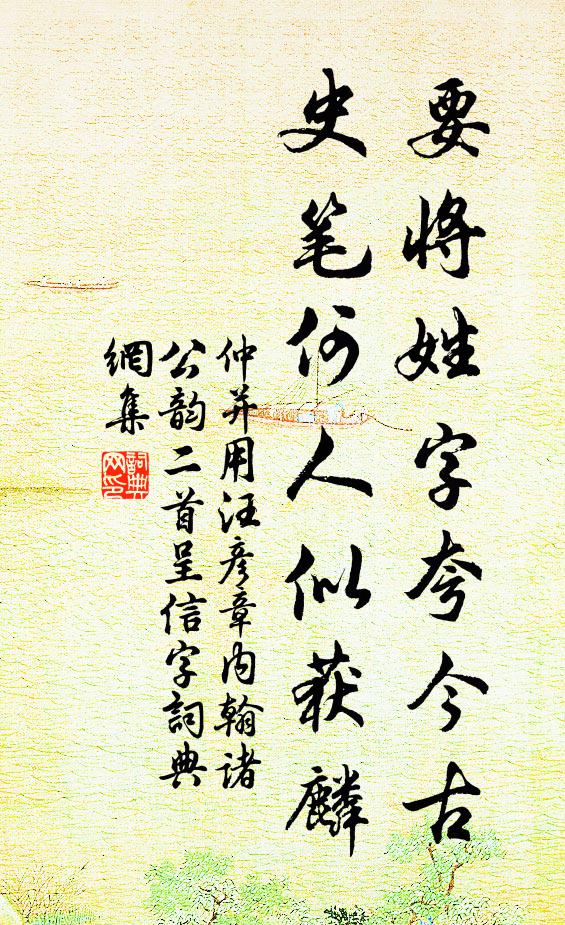 要将姓字夸今古
史笔何人似获麟
仲并用汪彦章内翰诸
公韵二首呈信字詞典
網集
詞典
网印